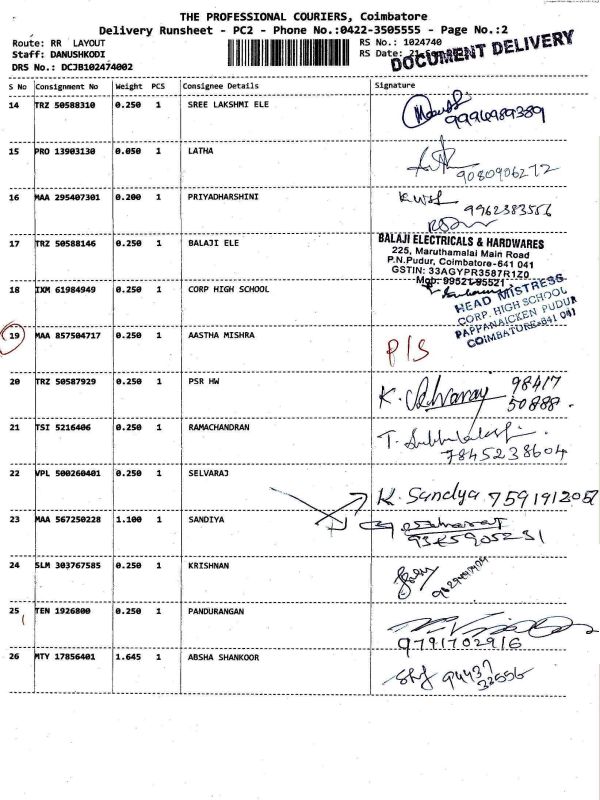 THE PROFESSIONAL COURIERS, Coimbatore
Delivery Runsheet - PC2 - Phone No.:0422-3505555 - Page No.:2
Route: RR LAYOUT
Staff: DANUSHKODI
DRS No.: DCJB102474002
RS No.: 1024740
RS Date:
DOCUMENT DELIVERY
S No Consignment No Weight PCS Consignee Details Signature
14 TRZ 50588310 0.250 1 SREE LAKSHMI ELE
9994989389
15 PRO 13903130 0.050 1 LATHA
9080906272
16 MAA 295407301 0.200 1 PRIYADHARSHINI
9962383556
17 TRZ 50588146 0.250 1 BALAJI ELE
BALAJI ELECTRICALS & HARDWARES
225, Maruthamalai Main Road
P.N.Pudur, Coimbatore-641 041
GSTIN: 33AGYPR3587R1Z0
Mob: 99521-95521
18 IXM 61984949 0.250 1 CORP HIGH SCHOOL
HEAD MISTRESS
CORP. HIGH SCHOOL
PAPPANAICKEN PUDUR
COIMBATORE-641 041
19 MAA 857504717 0.250 1 AASTHA MISHRA
P/S
20 TRZ 50587929 0.250 1 PSR HW
K. 98417
50888.
21 TSI 5216406 0.250 1 RAMACHANDRAN
T.
7845238604
22 VPL 500260401 0.250 1 SELVARAJ
K. Sandya 759191205
23 MAA 567250228 1.100 1 SANDIYA
9345905231
24 SLM 303767585 0.250 1 KRISHNAN
25 TEN 1926800 0.250 1 PANDURANGAN
9791702916
26 MTY 17856401 1.645 1 ABSHA SHANKOOR
94437
33556